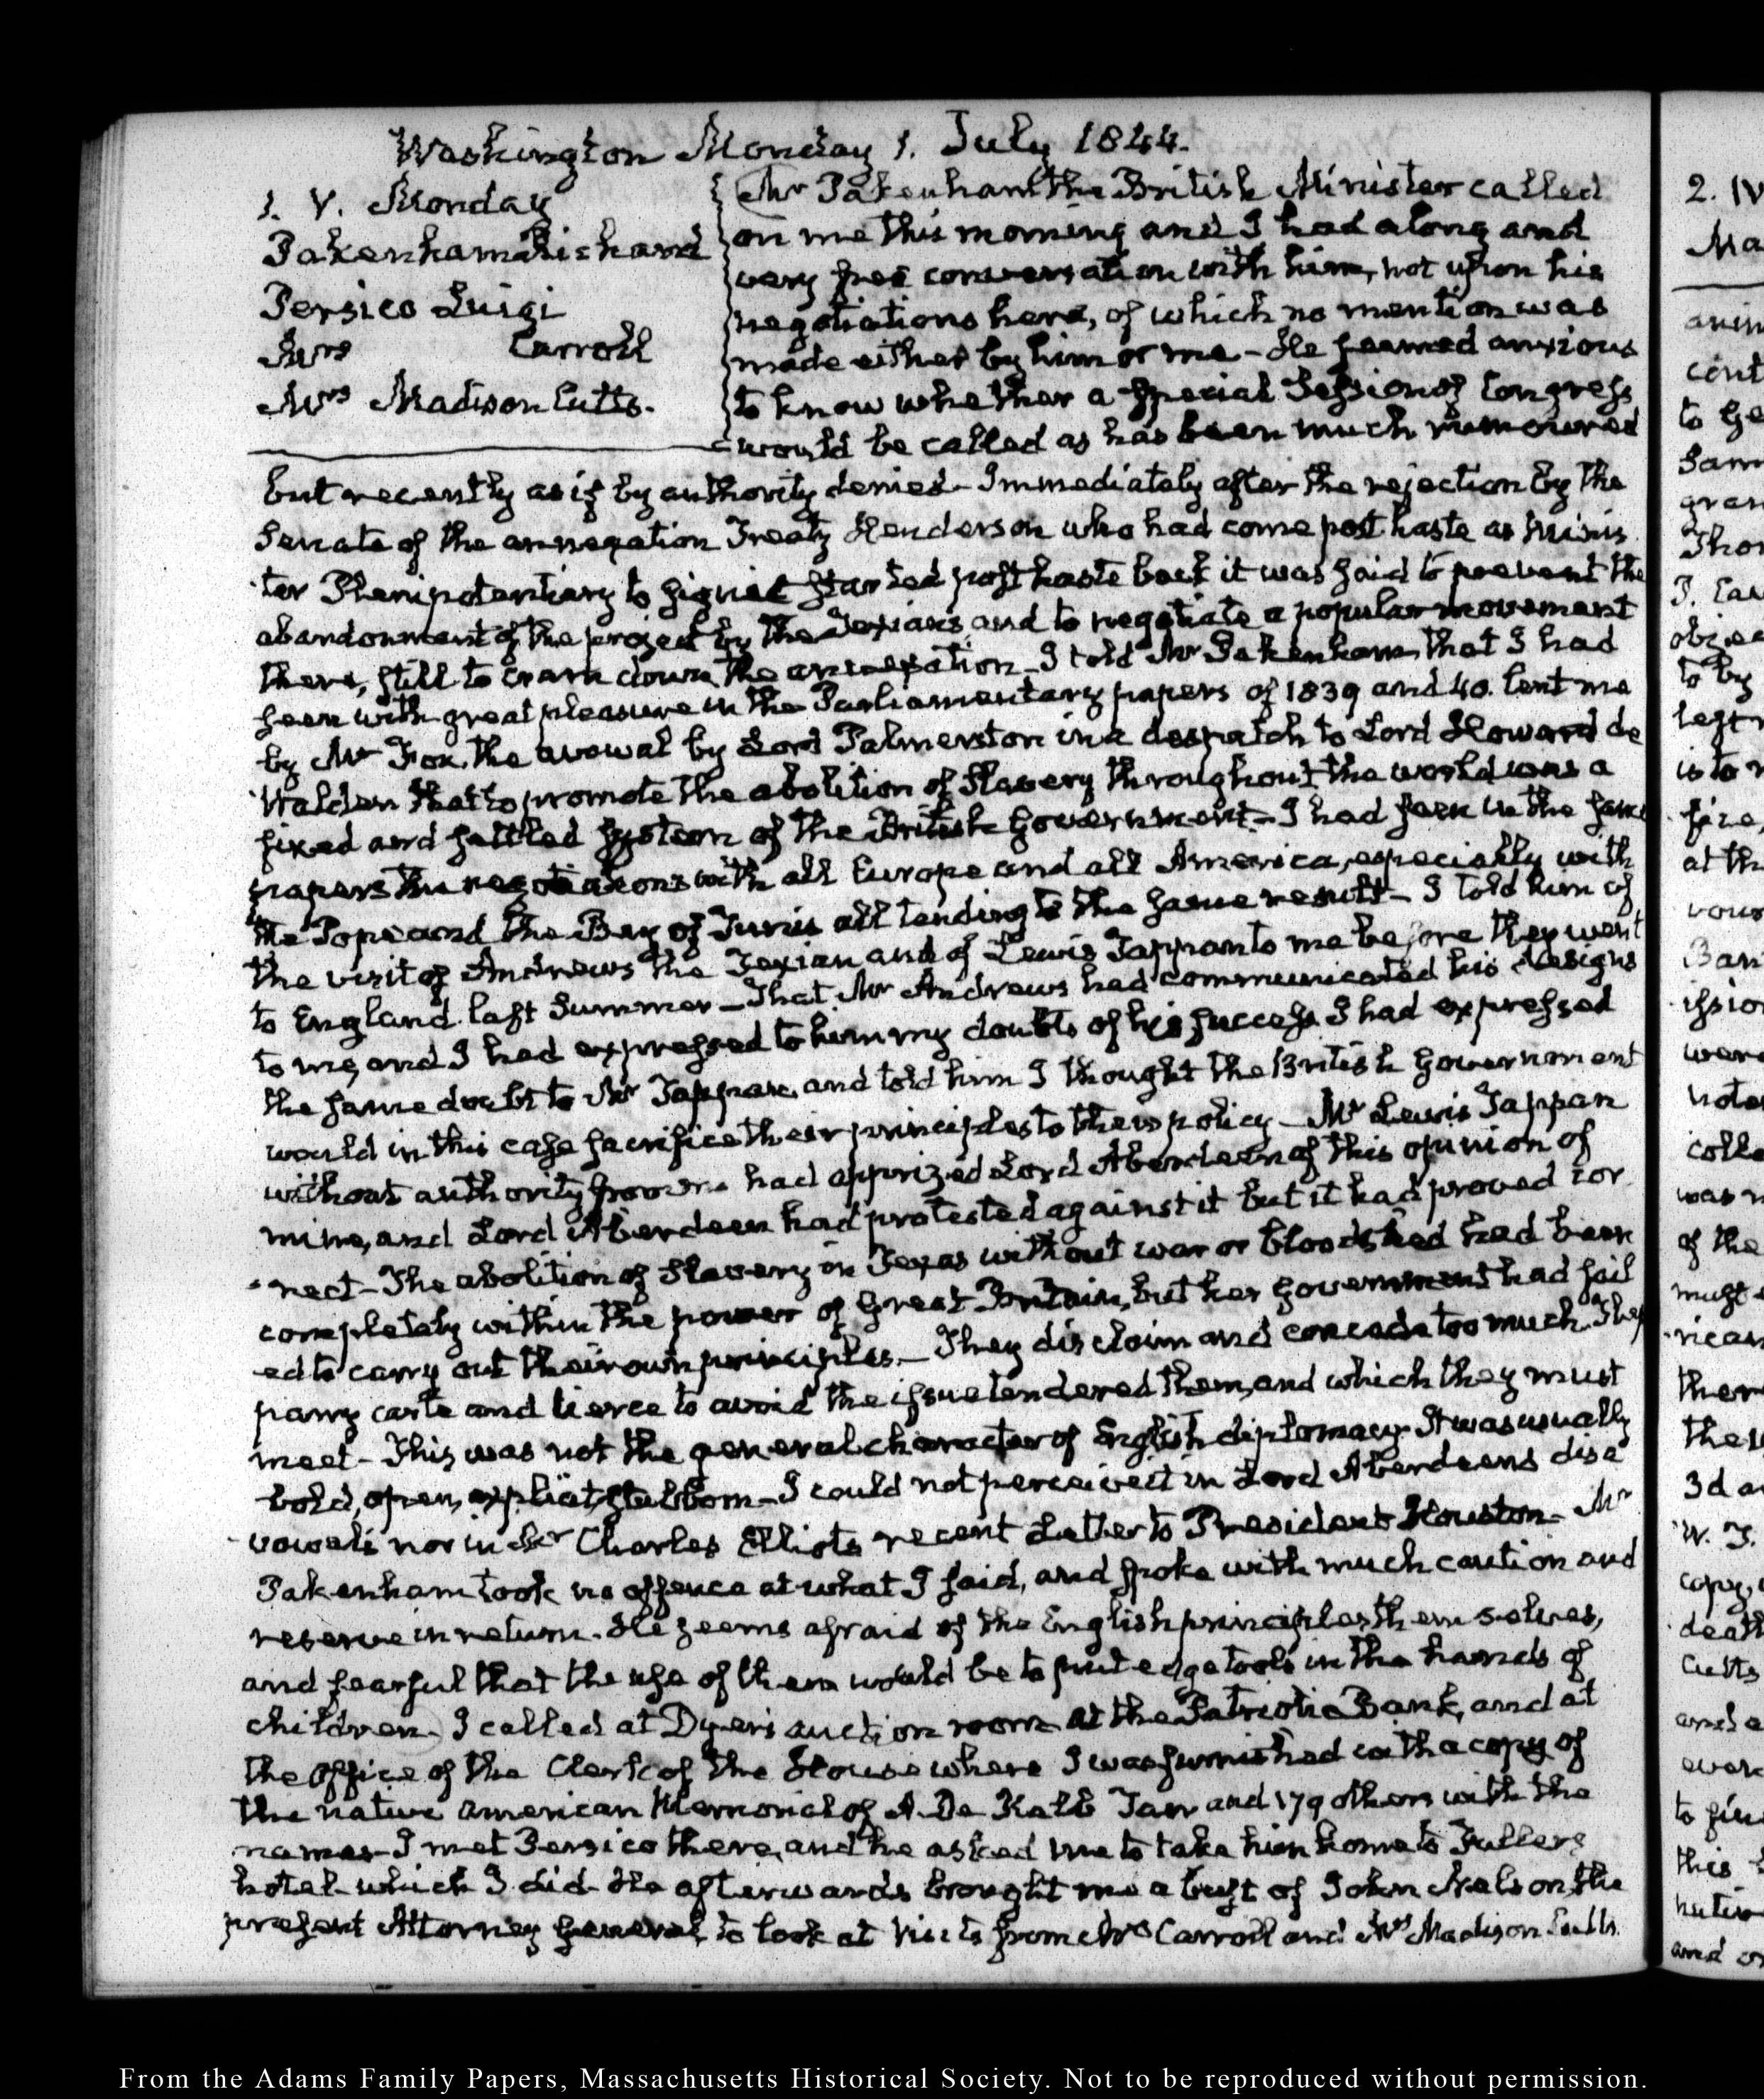 Washington Monday 1. July 1844.
1. V. Monday
Pakenham Richard
Persico Luigi
Mrs Carroll
Mrs Madison Cutts.
Mr Pakenham the British Minister called
on me this morning and I had a long and
very free conversation with him, not upon his
negotiations here, of which no mention was
made either by him or me - He seemed anxious
to know whether a special Session of Congress
would be called as has been much rumoured
but recently as if by authority denied - Immediately after the rejection by the
Senate of the annexation Treaty Henderson who had come post haste as Minis
ter Plenipotentiary to sign it started post haste back it was said to prevent the
abandonment of the project by the Texians, and to negotiate a popular movement
there, still to cram down the annexation - I told Mr Pakenham that I had
seen with great pleasure in the Parliamentary papers of 1839 and 40. lent me
by Mr Fox, the avowal by Lord Palmerston in a despatch to Lord Howard de
Walden that to promote the abolition of Slavery throughout the world was a
fixed and settled system of the British Government - I had seen in the same
papers the negotiations with all Europe and all America, especially with
the Pope and the Bey of Tunis all tending to the same result - I told him of
the visit of Andrews the Texian and of Lewis Tappan to me before they went
to England last Summer - That Mr Andrews had communicated his designs
to me, and I had expressed to him my doubts of his success. I had expressed
the same doubt to Mr Tappan, and told him I thought the British Government
would in this case sacrifice their principles to their policy - Mr Lewis Tappan
without authority from me had apprized Lord Aberdeen of this opinion of
mine, and Lord Aberdeen had protested against it but it had proved cor
rect - The abolition of Slavery in Texas without war or bloodshed had been
completely within the power of Great Britain, but her government had fail
ed to carry out their own principles. - They disclaim and concede too much. They
parry carte and tierce to avoid the issue tendered them, and which they must
meet - This was not the general character of English diplomacy. It was usually
bold, open, explicit, stubborn - I could not perceive it in Lord Aberdeens disa
vowals nor in Sir Charles Elliots recent Letter to President Houston - Mr
Pakenham took no offence at what I said, and spoke with much caution and
reserve in return. He seems afraid of the English principles themselves,
and fearful that the use of them would be to put edge tools in the hands of
children. I called at Dyer's auction room at the Patriotic Bank, and at
the Office of the Clerk of the House where I was furnished with a copy of
the native American Memorial of A. De Kalb Tarr and 179 others with the
names - I met Persico there, and he asked me to take him home to Fullers
hotel which I did - He afterwards brought me a bust of John Nelson, the
present Attorney General, to look at Visits from Mrs Carroll and Mrs Madison Cutts.
2. IV
Ma
cont
to
gran
left
is to
at the
of the
3d
W. T.
copy,
death
Cutts
this
From the Adams Family Papers, Massachusetts Historical Society. Not to be reproduced without permission.